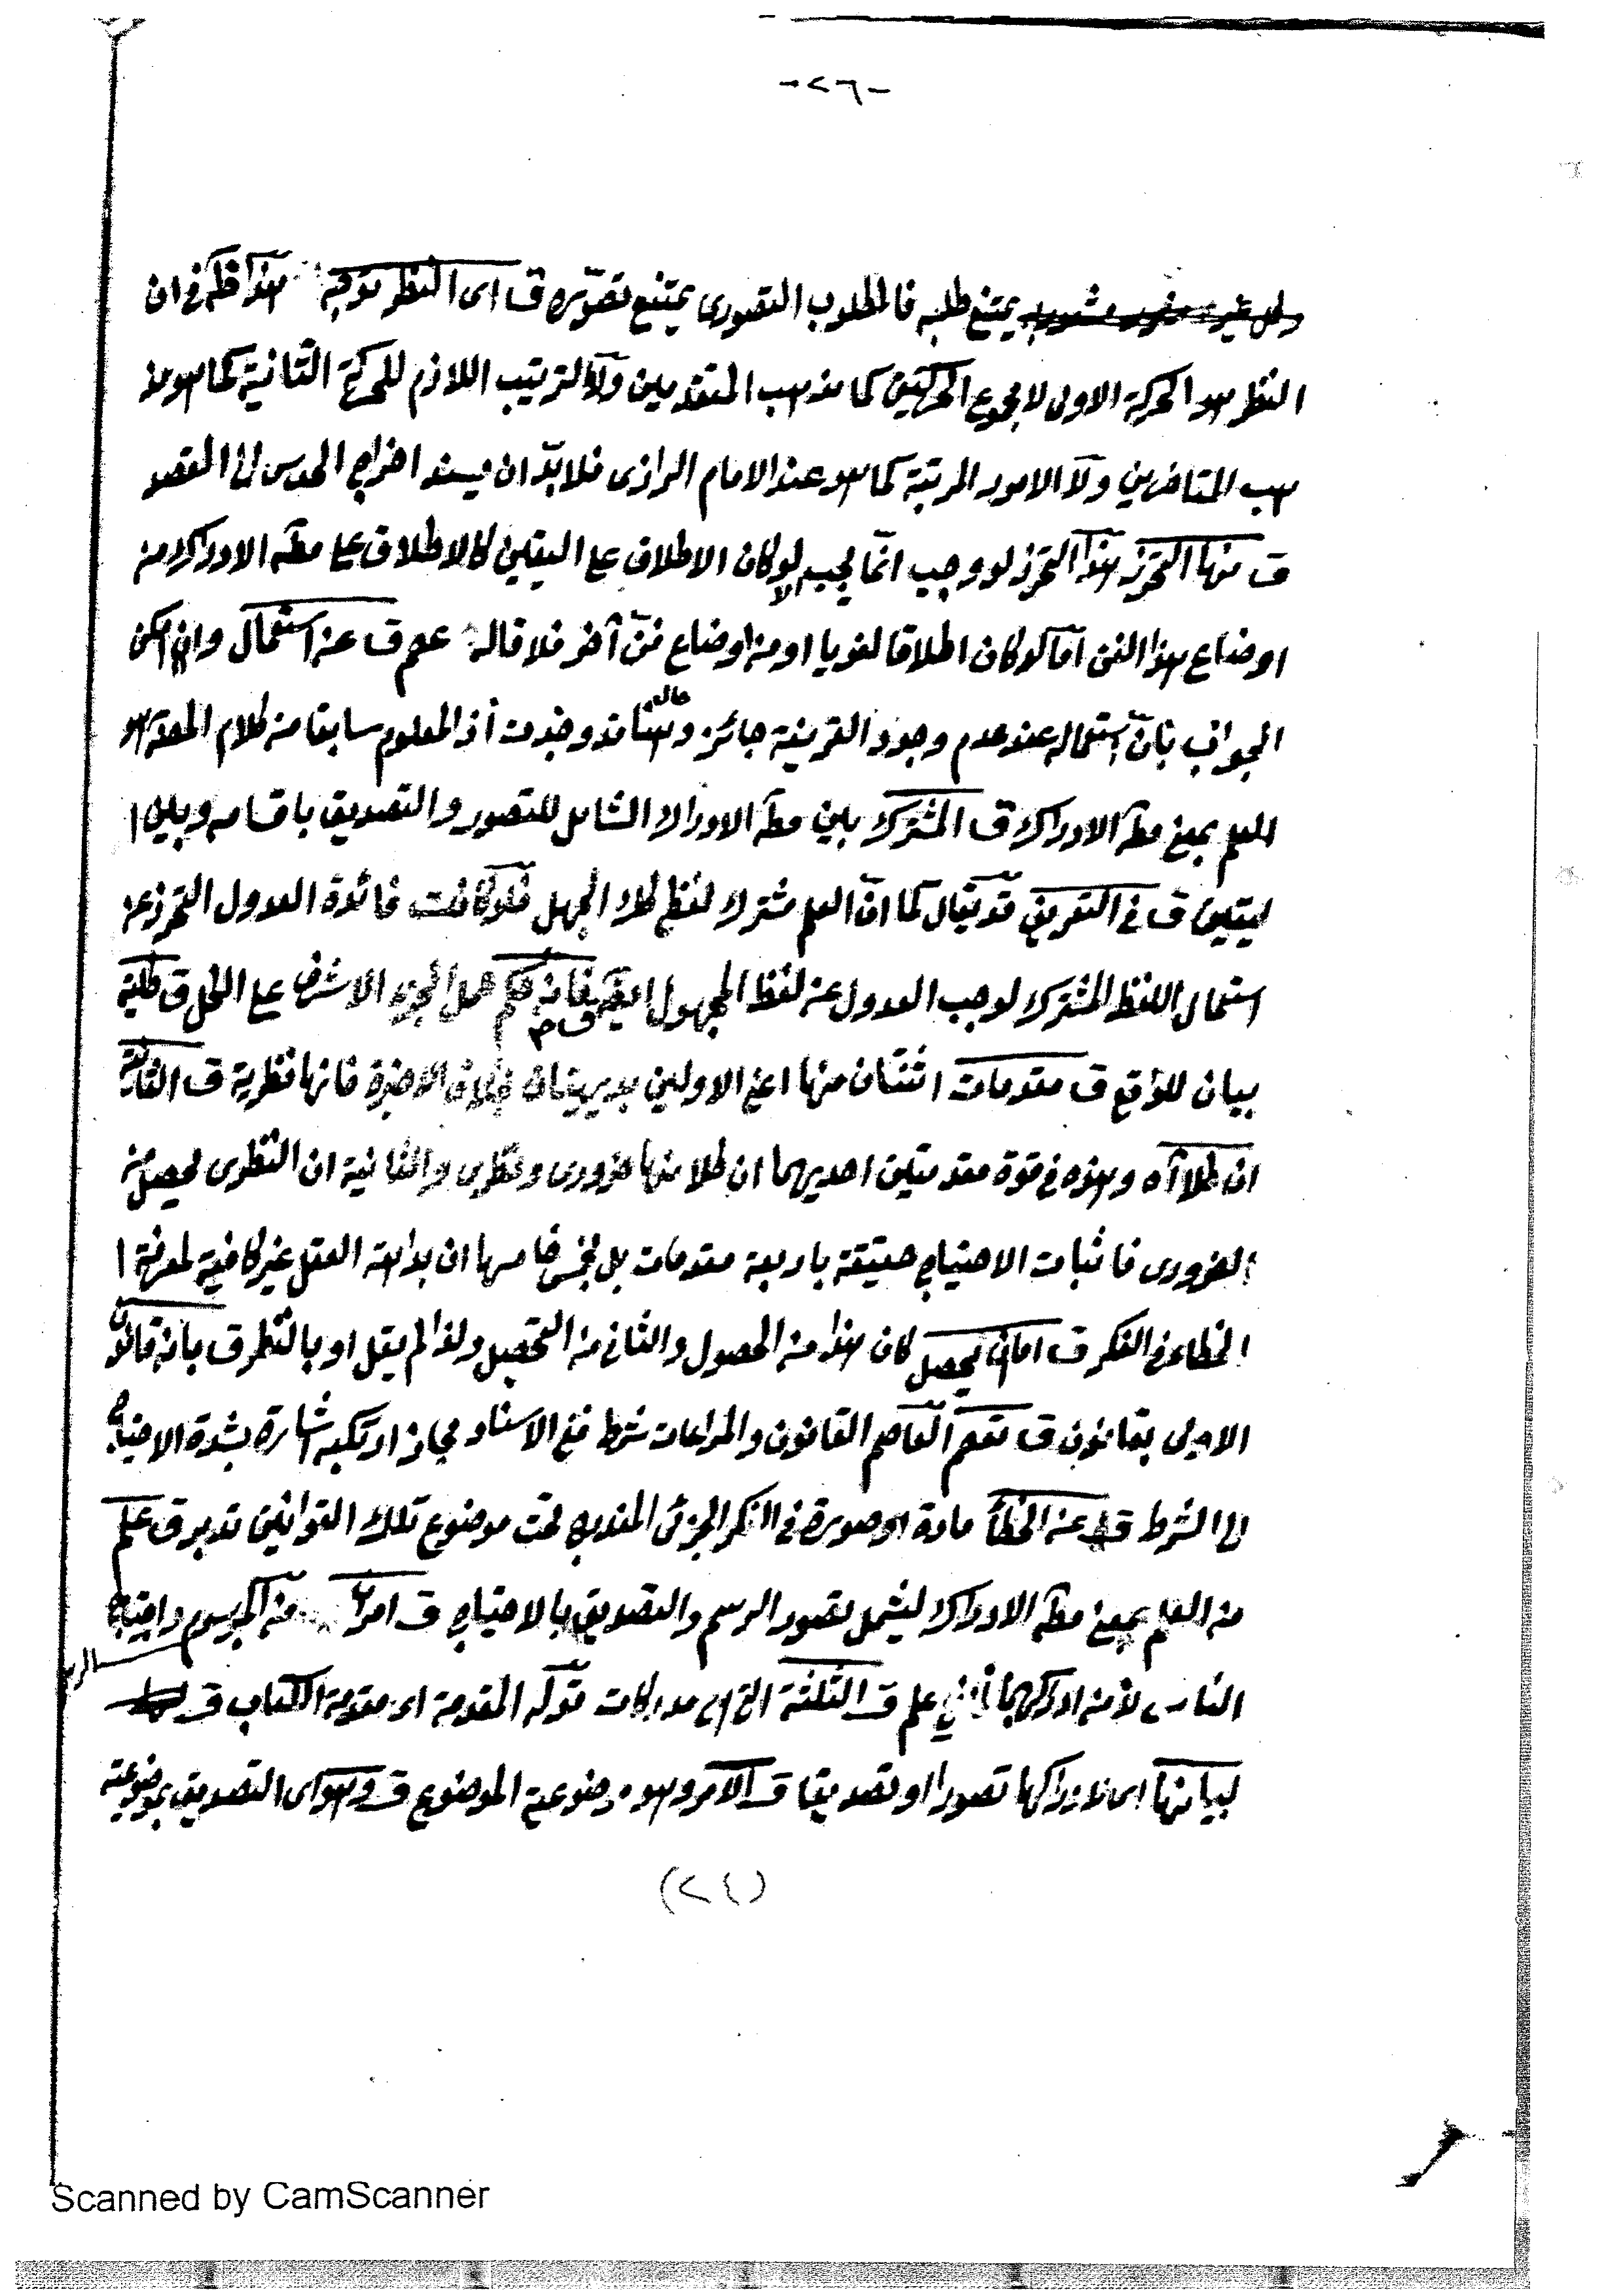 -٢٦-
يمتنع طلبه فالمطلوب التصورى يمتنع تصوّره ق اى النظر توجه هذا ظ في ان
النظر هو الحركة الاولى لا مجموع الحركتين كما مذهب المتقدمين ولا الترتيب اللازم للحركة الثانية كما هو مذ
هب المتاخرين ولا الامور المرتبة كما هو عند الامام الرازى فلا بدّ ان يسند اخراج الحدس الى القصد
ق منها التحرز هذا التحرز لو وجب انما يجب لو كان الاطلاق على اليقين كالاطلاق على مطه الادراك من
اوضاع هذا الفن اما لو كان اطلاقا لغويا او من اوضاع فنّ آخر فلا قاله عم ق عن استعمال وان امكن
الجواب بان استعماله عند عدم وجود القرينة جائز وهنا قد وجدت اذ المعلوم سابقا من كلام المصه هو
حاله
العلم بمعنى مطه الادراك ق المشترك بين مطه الادراك الشامل للتصور والتصديق باقسامه وبين ا
ليقين ق في التعريف قد يقال كما انّ العلم مشترك لفظ كذلك الجهل فلو كانت فائدة العدول التحرز عن
استعمال اللفظ المشترك لوجب العدول عن لفظ المجهول ايضا ق فانه حكم حمل الجزء الاشرف على الكل ق كلية
بيان للواقع ق مقدمات اثنتان منها اعنى الاوليين بديهيتان بخلاف الاخيرة فانها نظرية ق الثانية
ان كلا آه وهذه في قوة مقدمتين احديهما ان كلا منها ضرورى ونظرى والثانية ان النظرى يحصل من
الضرورى فاثبات الاحتياج حقيقة باربعة مقدمات بل بخمس خامسها ان بداهة العقل غير كافية لمعرفة ا
لخطاء في الفكر ق اما ان يحصل كان هذا من الحصول والثانى من التحصيل ولذا لم يقل او بالنظر ق بانه قانون
الاولى بقانون ق تعصم العاصم القانون والمراعات شرط ففى الاسناد مجاز ارتكبه اشارة بشدة الاحتياج
الى الشرط ق عن الخطأ مادة او صورة في الفكر الجزئى المندرج تحت موضوع تلك القوانين تدبر ق علم
من العلم بمعنى مطه الادراك ليشمل تصور الرسم والتصديق بالاحتياج ق امران من الرسوم واحتياج
الناس لانه ادراكهما علم ق الثلثة التى هى مدركات قوله المقدمة اى مقدمة الكتاب ق
لبيانها اى لادراكها تصورا او تصديقا ق الامر وهو موضوعية الموضوع ق وهو اى التصديق بموضوعية
(٢٤)
Scanned by CamScanner